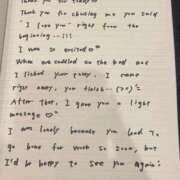 Thank you for today♡
Thank you for choosing me you said
"I love you" right from the
beginning...!!!
I was so excited♡
When we cuddled on the bed and
I licked your, I came
right away, you finish (>з<)~
After that, I gave you a light
massage ♡
I am lonely because you had to
go home for work so soon, but
I'd be happy to see you again!